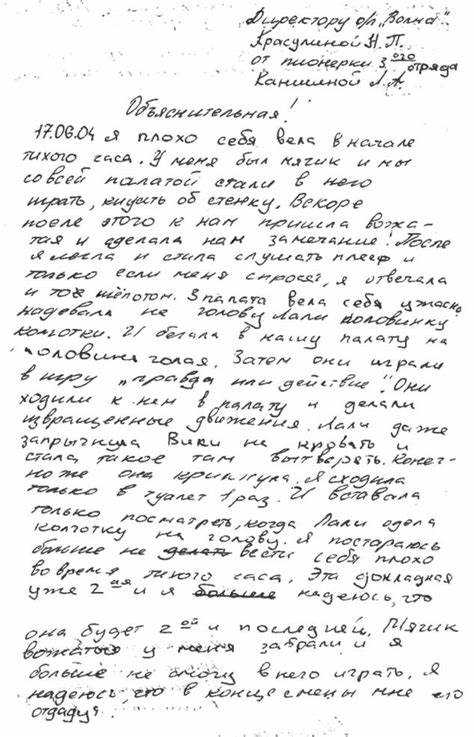 Директору о/л „Волна"
Красулиной Н.П.
от пионерки 3 ого отряда
Каншиной Л.А.
Объяснительная!
17.06.04 Я плохо себя вела в начале
тихого часа. У меня был мячик и мы
со всей палатой стали в него
играть, кидать об стенку. Вскоре
после этого к нам пришла вожа-
тая и сделала нам замечание! После
я легла и стала слушать плеер и
только если меня спросят, я отвечала
и то шёпотом. 3 палата вела себя ужасно
надевала на голову Лали половинку
колготки. И бегала в нашу палату на
половина голая. Затем они играли
в игру „правда или действие". Они
ходили к нем в палату и делали
извращенные движения. Лали даже
запрыгнула Вики на кровать и
стала такое там вытворять. Конеч-
но же она крикнула. Я сходила
только в туалет 1 раз. И вставала
только посмотреть, когда Лали одела
колготку на голову. Я постараюсь
больше не делать вести себя плохо
во время тихого часа. Эта докладная
уже 2 ая и я больше надеюсь, что
она будет 2 ой и последней. Мячик
вожатые у меня забрали и я
больше не смогу в него играть. Я
надеюсь, что в конце смены мне его
отдадут.